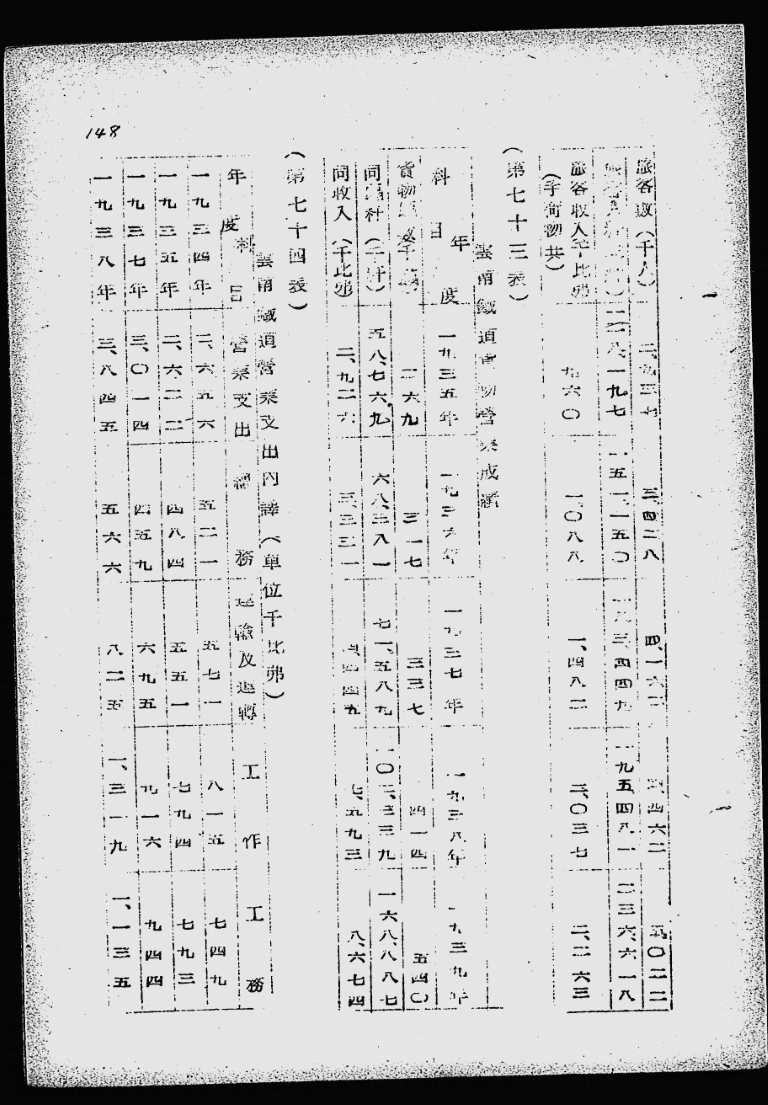 148
旅客數(千人) 三、四二八 五、〇二二
一九五、四八一 二三六、六一八
旅客収入(千比弗) 九六〇 一、〇八八 一、四八二 二、〇三七 二、二六三
(手荷物共)
(第七十三表)
雲南鐵道貨物營業成績
科目 年度 一九三五年 一九三六年 一九三七年 一九三八年 一九三九年
二六九 三一七 三三七 四一四 五四〇
五八、七六九 六八、三八一 七一、五八九 一〇三、三三九 一六八、八八七
同收入(千比弗) 二、九二六 三、三三一 七、五九三 八、六七四
(第七十四表)
雲南鐵道營業支出內譯(單位千比弗)
年度 科目 營業支出 總務 運輸及運轉 工作 工務
一九三四年 二、六五六 五二一 五七一 八一五 七四九
一九三五年 二、六二二 四八四 五五一 七九四 七九三
一九三七年 三、〇一四 四五九 六九五 九一六 九四四
一九三八年 三、八四五 五六六 八二五 一、三一九 一、一三五